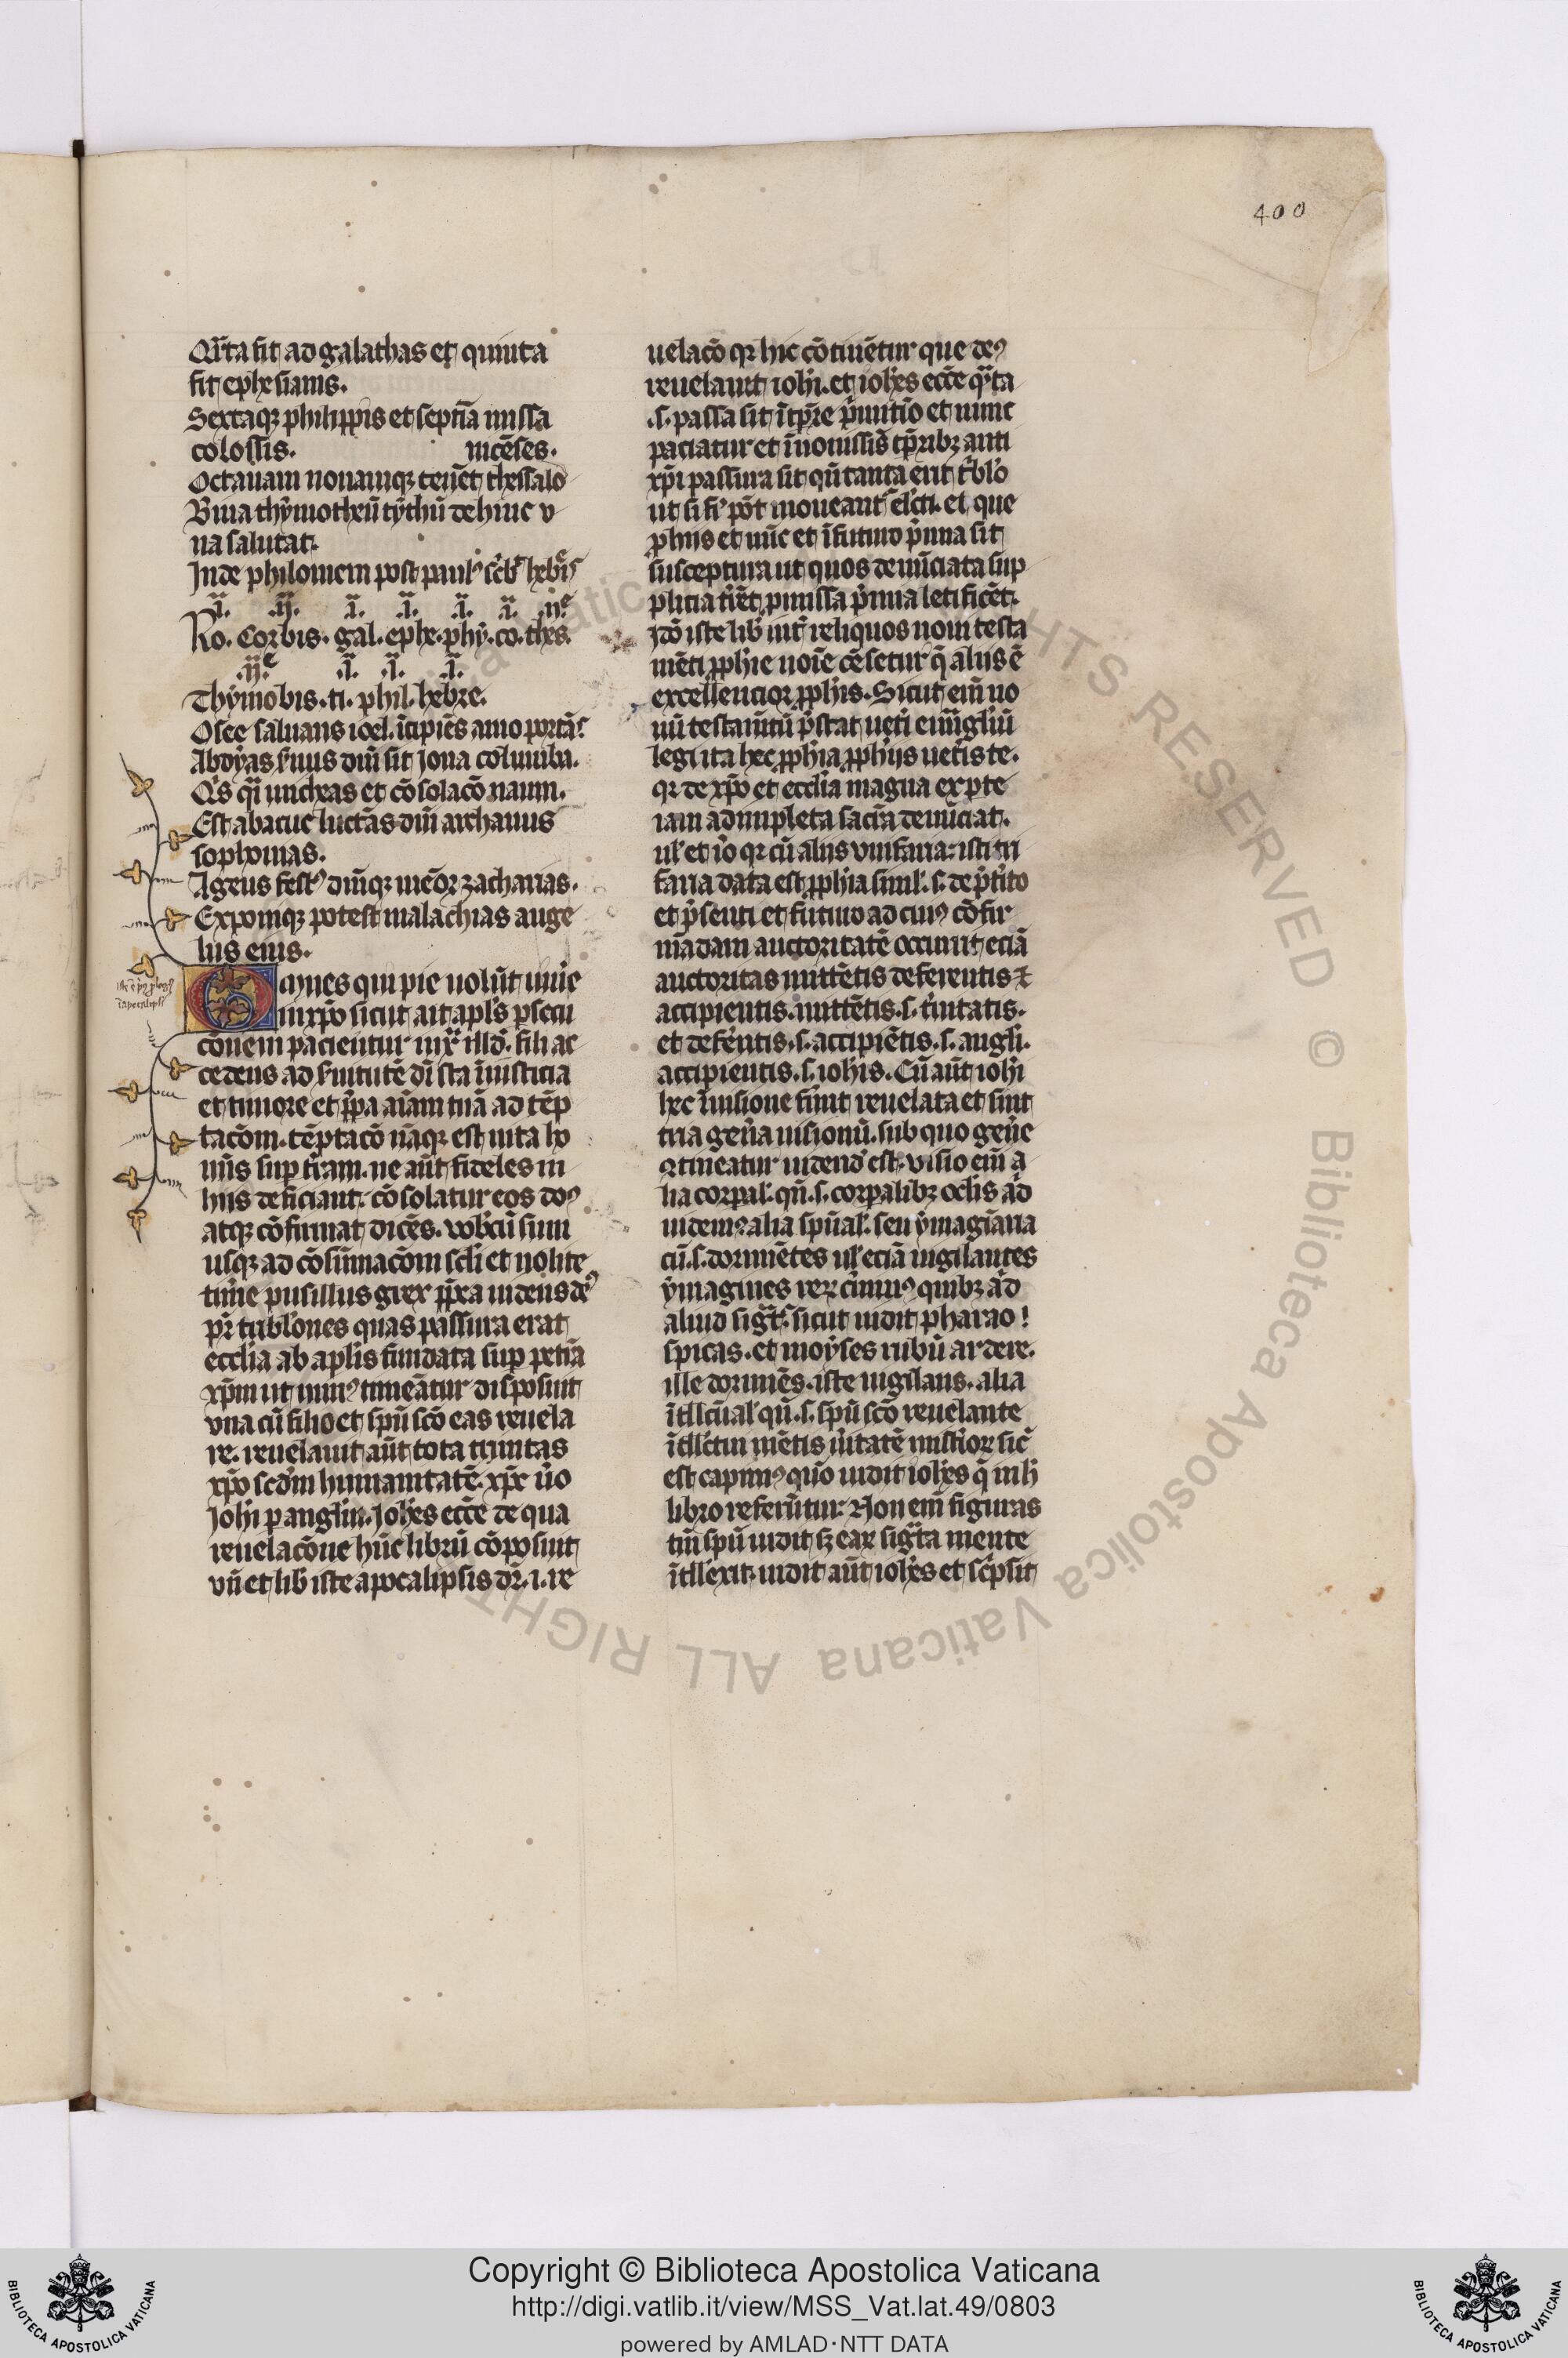 400
Qrta fit ad galathas et quinta
fit ephesianis.
Sextaqz philippis et septīa missa
colossis. nicēses.
Octauam nonamqz tenēt thessalo
Bina thymotheū tythū dehinc v
na salutat.
Inde philomem post paulꝰ scͥbͭ hebrͤꝭ
.i. .ii. .i. .i. .i. .i. .iiͤ.
Ro. Corbis. gal. ephe. phy. co. thes.
.iiͤ. .i. .i. .i.
Thymobis. ti. phil. hebre.
Osee saluans ioel. īcipiēs amo portāꝭ
Abdyas suus dn̄i sit iona columba.
Qͥs qͣi micheas et cōsolacō naum.
Est abacuc luctās dn̄i archanus
sophonias.
Ageus festꝰ dn̄iqz memoꝝ zacharias.
Exponiqz potest malachias ange
lus eius.
Omnes qui pie uolūt uiuͤe
in xp̄o sicut ait apl̄s p̱secu
cōnem pacientur iuxͣ illd̄. fili ac
cedens ad suitutē dī sta ī iusticia
et timore et p̄pa aīam tuā ad tēp
tacōm. tēptacō nāqz est uita ho
mīs suꝑ tͬram. ne aūt fideles in
hiis deficiant. cōsolatur eos doꝰ
atqz cōfirmat dicēs. vobcū sum
usqz ad cōsūmacōm scli et nolite
timͤe pusillus grex ꝓ̄xa uidens dēꝰ
pr̄ tͥbloes quas passura erat
eccl̄ia ab aplīs fundata suꝑ petrā
xp̄m ut minꝰ timeātur disposuit
vna cū filio et spū scō eas reuela
re. reuelauit aūt tota trinitas
xp̄o scdm humanitatē. xp̄c ūo
Johī ꝑ anglm. Johes eccē de qua
reuelacōne hūc librū cōposuit
vn̄ et lib̄ iste apocalipsis dr̄. i. re
uelacō qr hic cōtinētur que deꝰ
reuelauit iohī. et iohēs eccē qͣta
.s. passa sit ītp̄re pͥmitiō et nunc
paciatur et ī nouissīs tp̄ribz anti
xp̄i passura sit qn̄ tanta erit tͥbl̄o
ut si fiͥ pōt moueant elcti. et que
ꝓhijs et nūc et ī futuro pͥmia sit
susceptura ut quos denūciata sup
plicia trͥēt ꝓmissa pͥmia letificēt.
Idō iste lib̄ int̄ reliquos noui testa
mēti ꝓphīe noīe cēsetur qͣ aliis ē
excellencior ꝓphiis. Sicut em̄ no
uū testamtū pͣstat uetͥi euuāgliū
legi ita hec ꝓphīa ꝓphijs uetͥis te.
qr de xp̄o et eccl̄ia magna ex ꝑte
iam adimpleta sacͣta denūciat.
ul̓ et iō qr cū aliis vnifaria: isti tri
faria data est ꝓphīa siml̓. s. de pͣtito
et pͣsenti et futuro ad cuiꝰ cōfir
mādam auctoritatē occurrit eciā
auctoritas mittētis deferentis ⁊
accipientis. mittētis. s. tͥnitatis.
et defentis. s. accipiētis. s. angl̄i.
accipientis. s. iohis. Cū aūt iohi
hec ī uisione sunt reuelata et sint
tria genͣa uisionū. sub quo genͤe
ꝯtineatur uidend̄ est. visio em̄ a
lia corꝑal̓. qn̄. s. corꝑalibz oclis aͥd
uidemꝰ alia spūal̓. seu ymagināria
cū. s. dormiētes ul̓ eciā uigilantes
ymagines reꝝ cͥnimꝰ quibz aͥd
aliud sigͣtͬ sicut uidit pharao
spicas. et moyses rubū ardere.
ille dormiēs. iste uigilans. alia
ītllcūal̓ qn̄. s. spū scō reuelante
ītllctui mētis ūitatē mistͥoꝝ sic̄
est capimꝰ quō uidit iohes qͣ in h̓
libro referūtur. Non em̄ figuras
tm̄ spū uidit sz eaꝝ sigͣta mente
ītllexit. uidit aūt iohes et scͥpsit
Copyright © Biblioteca Apostolica Vaticana
http://digi.vatlib.it/view/MSS_Vat.lat.49/0803
powered by AMLAD·NTT DATA
BIBLIOTECA APOSTOLICA VATICANA
BIBLIOTECA APOSTOLICA VATICANA
© Biblioteca Apostolica Vaticana ALL RIGHTS RESERVED